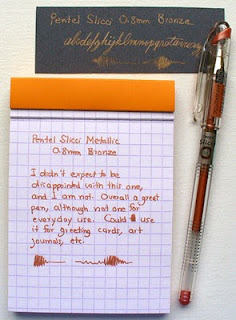 Pentel Slicci 0.8mm Bronze
abcdefghijklmnopqrstuvwxyz
Pentel Slicci Metallic
0.8mm Bronze
I didn't expect to be
disappointed with this one,
and I am not. Overall a great
pen, although not one for
everyday use. Could use
it for greeting cards, art
journals, etc.